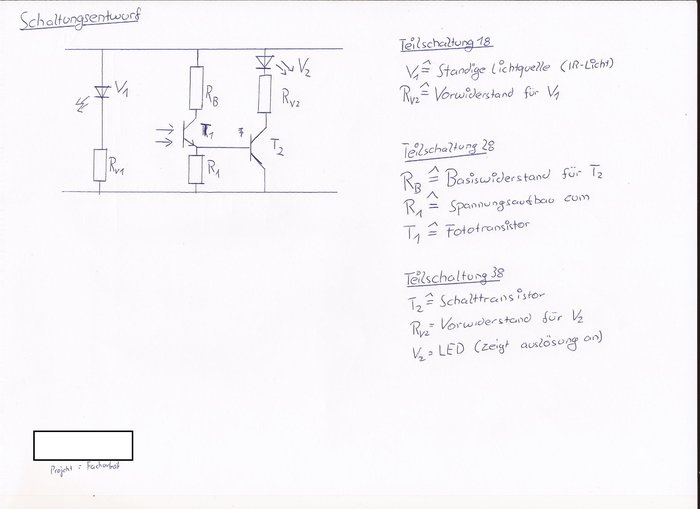 Schaltungsentwurf
V1
RV1
RB
T1
R1
V2
RV2
T2
Teilschaltung 18
V1 ≙ Ständige Lichtquelle (IR-Licht)
RV2 ≙ Vorwiderstand für V1
Teilschaltung 28
RB ≙ Basiswiderstand für T2
R1 ≙ Spannungsaufbau zum
T1 ≙ Fototransistor
Teilschaltung 38
T2 ≙ Schalttransistor
RV2 = Vorwiderstand für V2
V2 = LED (zeigt auslösung an)
Projekt = Facharbeit